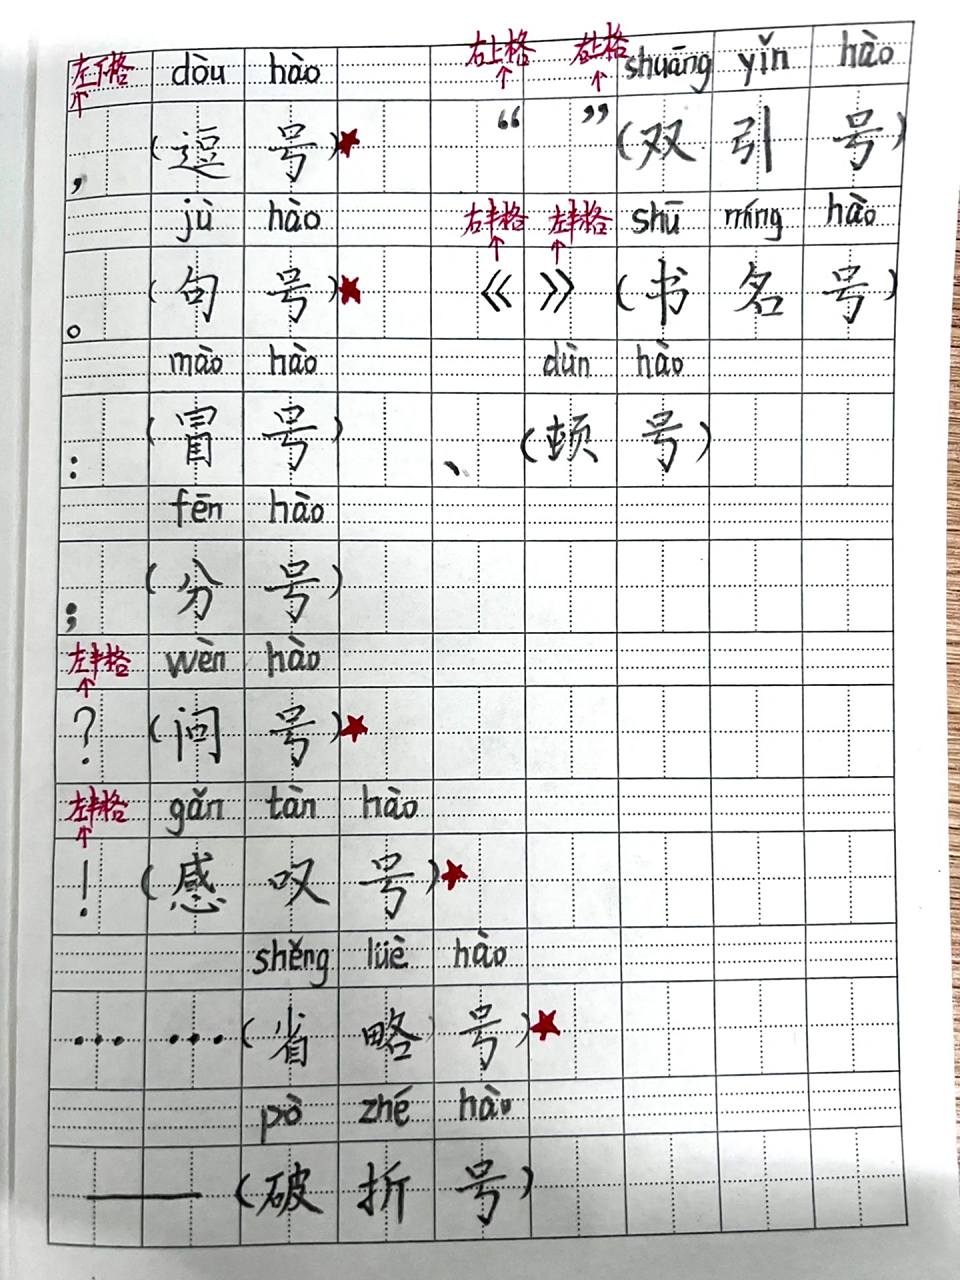 左下格 dòu hào 右上格 右上格 shuāng yǐn hào
， （逗号）★ “ ” （双引号）
jù hào 右半格 左半格 shū míng hào
。 （句号）★ 《 》 （书名号）
mào hào dùn hào
： （冒号） 、 （顿号）
fēn hào
； （分号）
左半格 wèn hào
？ （问号）★
左半格 gǎn tàn hào
！ （感叹号）★
shěng lüè hào
…… （省略号）★
pò zhé hào
—— （破折号）